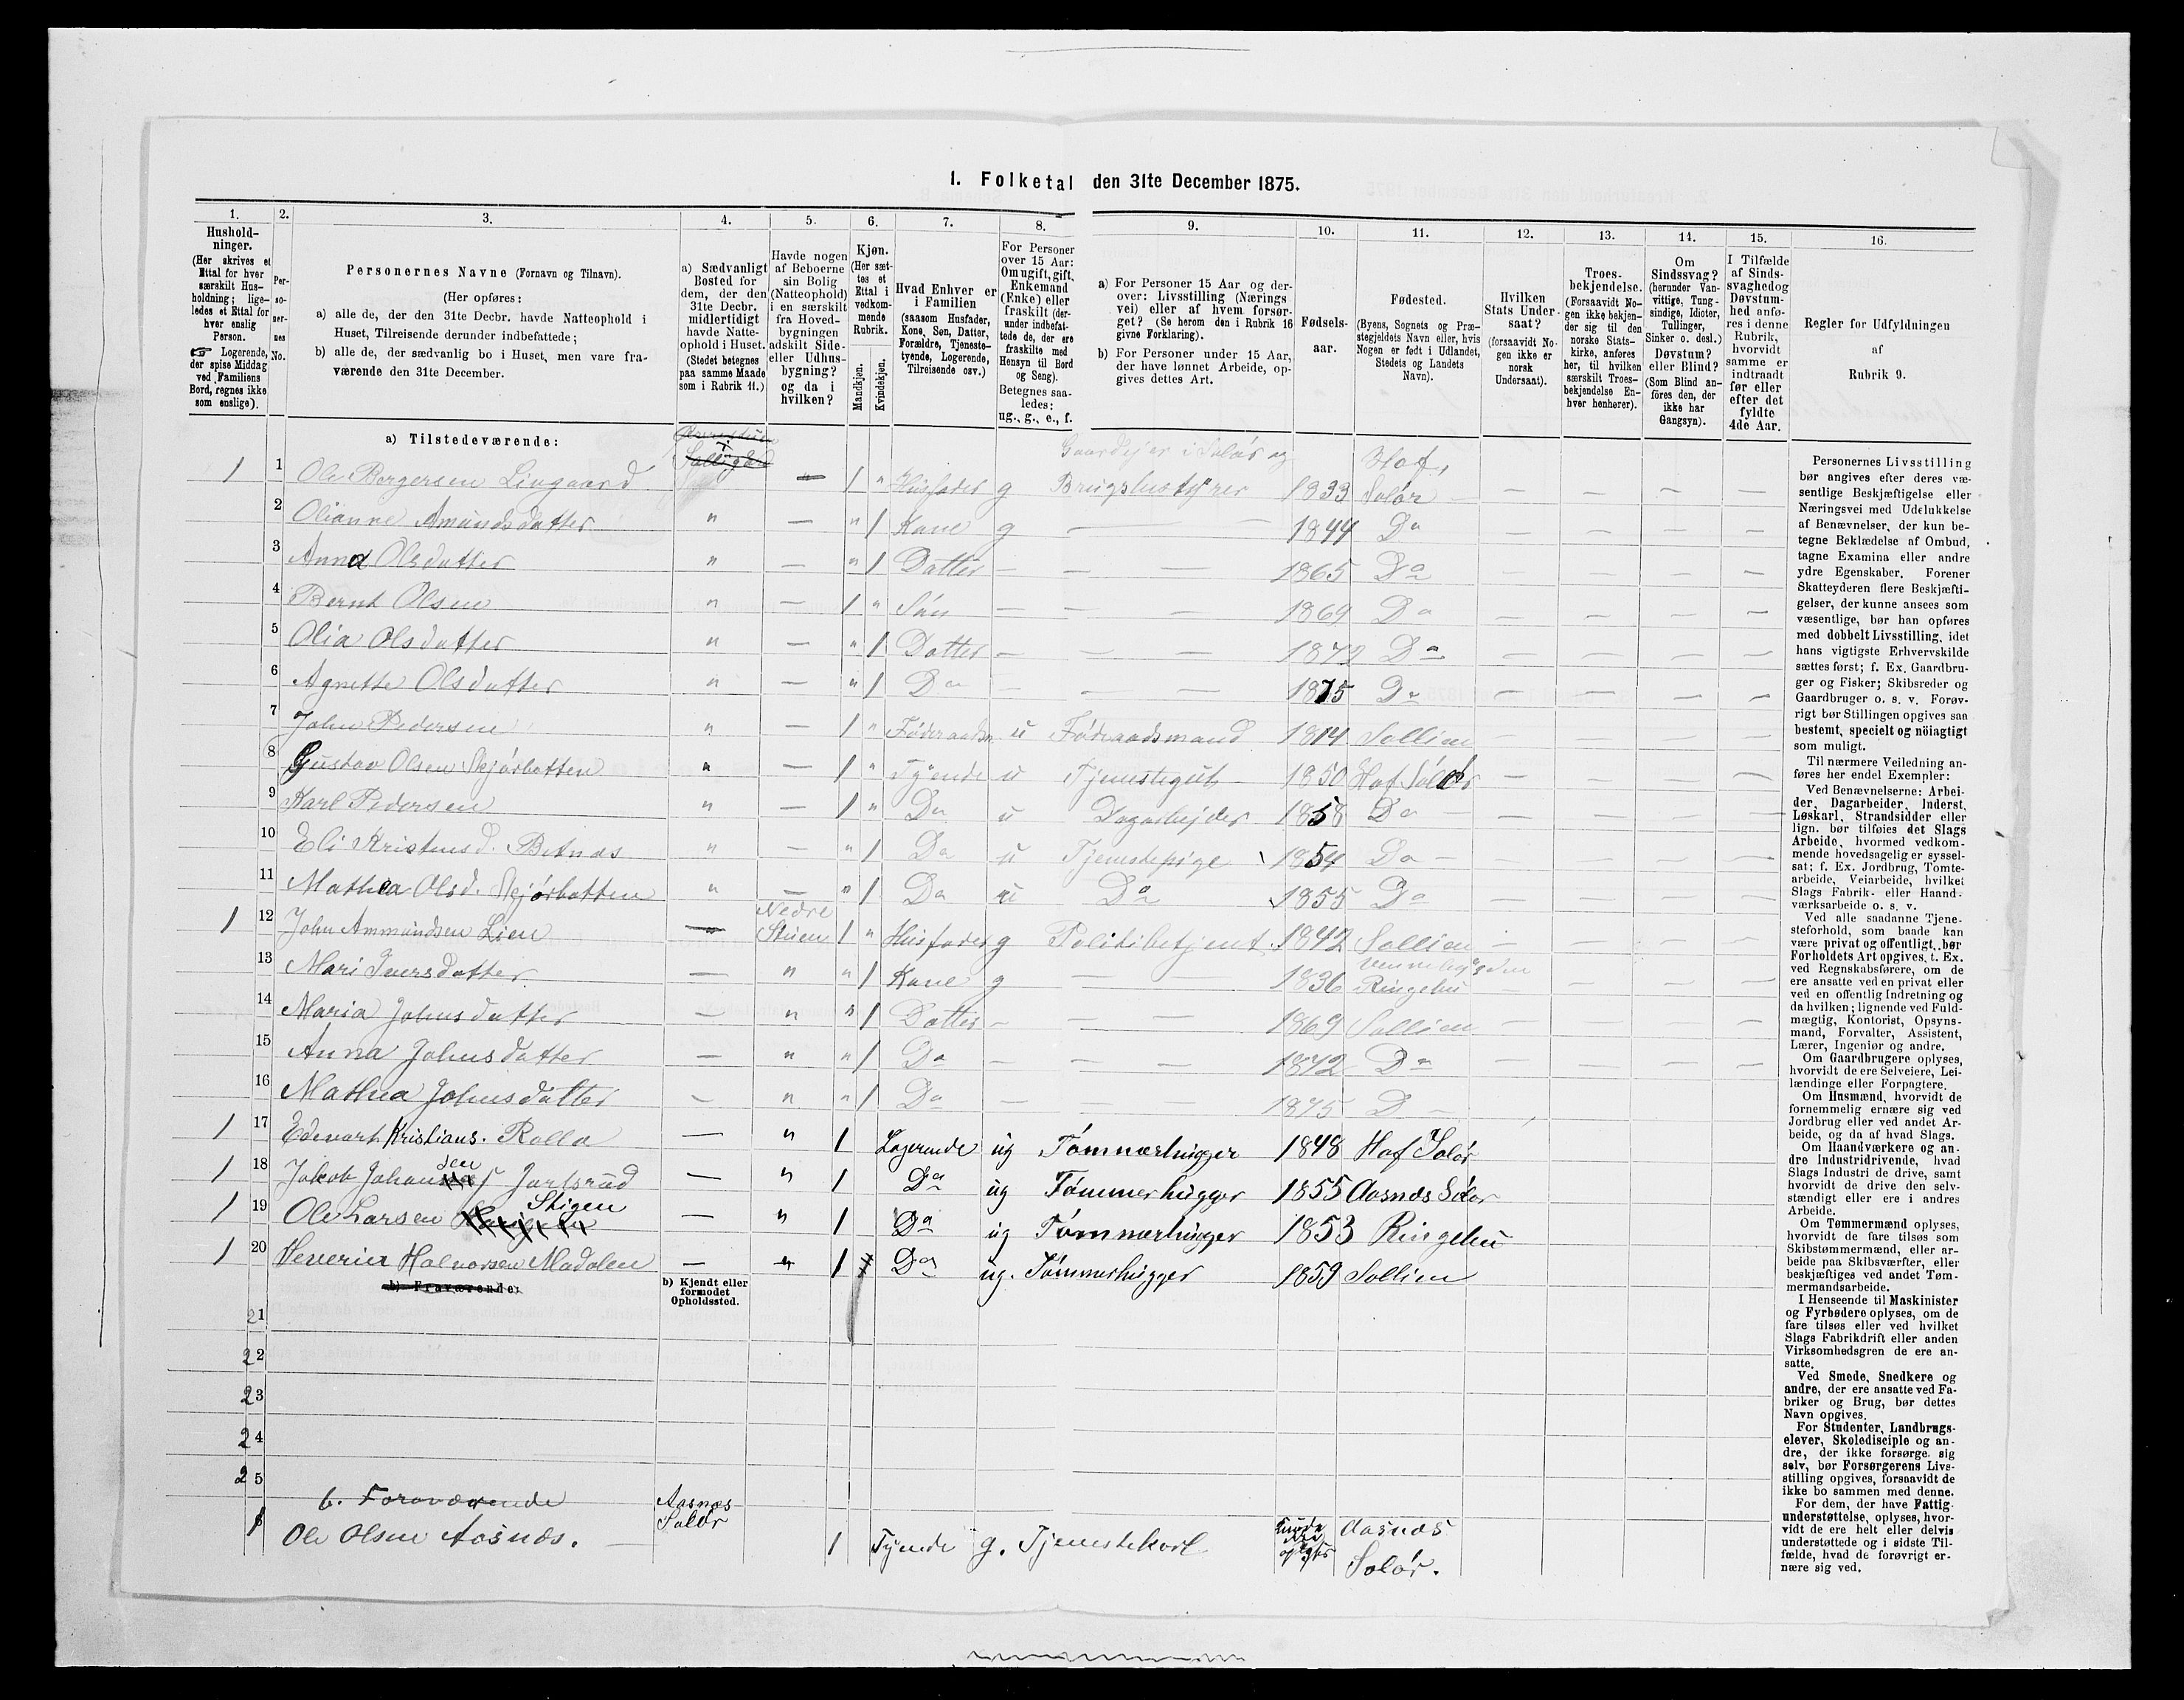 1. Folketal den 31te December 1875.
1. 2. 3. 4. 5. 6. 7. 8. 9. 10. 11. 12. 13. 14. 15. 16.
Hushold-
ninger.
(Her skrives et
Ettal for hver
særskilt Hus-
holdning; lige-
ledes et Ettal for
hver enslig
Person.
☞ Logerende,
der spise Middag
ved Familiens
Bord, regnes ikke
som enslige).
Per-
so-
ner-
nes
No.
Personernes Navne (Fornavn og Tilnavn).
(Her opføres:
a) alle de, der den 31te Decbr. havde Natteophold i
Huset, Tilreisende derunder indbefattede;
b) alle de, der sædvanlig bo i Huset, men vare fra-
værende den 31te December.
a) Sædvanligt
Bosted for
dem, der den
31te Decbr.
midlertidigt
havde Natte-
ophold i Huset.
(Stedet betegnes
paa samme Maade
som i Rubrik 11.)
Havde nogen
af Beboerne
sin Bolig
(Natteophold)
i en særskilt
fra Hoved-
bygningen
adskilt Side-
eller Udhus-
bygning?
og da i
hvilken?
Kjøn.
(Her sæt-
tes et
Ettal i
vedkom-
mende
Rubrik.
Mandkjøn.
Kvindekjøn.
Hvad Enhver er
i Familien
(saasom Husfader,
Kone, Søn, Datter,
Forældre, Tjeneste-
tyende, Logerende,
Tilreisende osv.)
For Personer
over 15 Aar:
Om ugift, gift,
Enkemand
(Enke) eller
fraskilt (der-
under indbefat-
tede de, der ere
fraskilte med
Hensyn til Bord
og Seng).
Betegnes saa-
ledes:
ug., g., e., f.
a) For Personer 15 Aar og der-
over: Livsstilling (Nærings-
vei) eller af hvem forsør-
get? (Se herom den i Rubrik 16
givne Forklaring).
b) For Personer under 15 Aar,
der have lønnet Arbeide, op-
gives dettes Art.
Fødsels-
aar.
Fødested.
(Byens, Sognets og Præ-
stegjeldets Navn eller, hvis
Nogen er født i Udlandet,
Stedets og Landets
Navn).
Hvilken
Stats Under-
saat?
(forsaavidt No-
gen ikke er
norsk
Undersaat).
Troes-
bekjendelse.
(Forsaavidt No-
gen ikke bekjen-
der sig til den
norske Stats-
kirke, anføres
her, til hvilken
særskilt Troes-
bekjendelse En-
hver henhører).
Om
Sindssvag?
(herunder Van-
vittige, Tung-
sindige, Idioter,
Tullinger,
Sinker o. desl.)
Døvstum?
eller Blind?
(Som Blind an-
føres den, der
ikke har
Gangsyn).
I Tilfælde
af Sinds-
svaghed og
Døvstum-
hed anfø-
res i denne
Rubrik,
hvorvidt
samme er
indtraadt
før eller
efter det
fyldte
4de Aar.
Regler for Udfyldningen
af
Rubrik 9.
a) Tilstedeværende:
Gaardejer i Solør og Hof,
1 1 Ole Bergersen Lingaard — 1 " Husfader g 1833 Solør — — — —
2 Olianne Amundsdatter " — " 1 Kone g — 1844 Do — — — —
3 Anna Olsdatter " — " 1 Datter — — — 1865 Do — — — —
4 Bernt Olsen " — 1 " Søn — — — 1869 Do — — — —
5 Olia Olsdatter " — " 1 Datter — — — 1872 Do — — — —
6 Agnette Olsdatter " — " 1 Do — — — 1875 Do — — — —
7 John Pedersen " — 1 " u Føderaadsmand 1814 Sollien — — — —
8 Gustav Olsen Skjørbotten " — 1 " Tyende u Tjenestegut 1850 Hof Solør — — — —
9 Karl Pedersen " — 1 " Do u Dagarbejder 1858 Do — — — —
10 Eli Kristensd. Botnos " — " 1 Do u Tjenestepige 1854 Do — — — —
11 Mathea Olsd. Skjørbotten " — " 1 Do u Do 1855 Do — — — —
Nedre
1 12 John Ammundsen Lien Stuen 1 " Husfader g Politibetjent 1842 Sollien — — — —
13 Mari Iversdatter — " " 1 Kone g — 1836 Ringebu — — — —
14 Maria Johnsdatter — " " 1 Datter — — — 1869 Sollien — — — —
15 Anna Johnsdatter — " " 1 Do — — — 1872 Do — — — —
16 Mathea Johnsdatter — " " 1 Do — — — 1875 D —
1 17 Edevart Kristians. Rolla — " 1 Logerende ug Tømmerhugger 1848 Hof Solør
1 18 Jakob Johansen Jarlsrud — " 1 Do ug Tømmerhugger 1855 Aasnæs Solør
Stigen
1 19 Ole Larsen — " 1 Do ug Tømmerhugger 1853 Ringebu
1 20 Halvorsen Modolen — " 1 Do ug. Tømmerhugger 1859 Sollien
b) Fraværende:
b) Kjendt eller
formodet
Opholdssted.
21
22
23
24
25
b. Fraværende Aasnæs
Solør
1 Ole Olsen Aasnæs. 1 Tyende g. Tjenestekarl Aasnæs
Solør.
Personernes Livsstilling
bør angives efter deres væ-
sentlige Beskjæftigelse eller
Næringsvei med Udelukkelse
af Benævnelser, der kun be-
tegne Beklædelse af Ombud,
tagne Examina eller andre
ydre Egenskaber. Forener
Skatteyderen flere Beskjæfti-
gelser, der kunne ansees som
væsentlige, bør han opføres
med dobbelt Livsstilling, idet
hans vigtigste Erhvervskilde
sættes først; f. Ex. Gaardbru-
ger og Fisker; Skibsreder og
Gaardbruger o. s. v. Forøv-
rigt bør Stillingen opgives saa
bestemt, specielt og nöiagtigt
som muligt.
Til nærmere Veiledning an-
føres her endel Exempler:
Ved Benævnelserne: Arbei-
der, Dagarbeider, Inderst,
Løskarl, Strandsidder eller
lign. bør tilføies det Slags
Arbeide, hvormed vedkom-
mende hovedsagelig er syssel-
sat; f. Ex. Jordbrug, Tomte-
arbeide, Veiarbeide, hvilket
Slags Fabrik- eller Haand-
værksarbeide o. s. v.
Ved alle saadanne Tjene-
steforhold, som baade kan
være privat og offentligt, bør
Forholdets Art opgives, t. Ex.
ved Regnskabsførere, om de
ere ansatte ved en privat eller
ved en offentlig Indretning og
da hvilken; lignende ved Fuld-
mægtig, Kontorist, Opsyns-
mand, Forvalter, Assistent,
Lærer, Ingeniør og andre.
Om Gaardbrugere oplyses,
hvorvidt de ere Selveiere, Lei-
lændinge eller Forpagtere.
Om Husmænd, hvorvidt de
fornemmelig ernære sig ved
Jordbrug eller ved andet Ar-
beide, og da af hvad Slags.
Om Haandværkere og an-
dre Industridrivende, hvad
Slags Industri de drive, samt
hvorvidt de drive den selv-
stændigt eller ere i andres
Arbeide.
Om Tømmermænd oplyses,
hvorvidt de fare tilsøs som
Skibstømmermænd, eller ar-
beide paa Skibsværfter, eller
beskjæftiges ved andet Tøm-
mermandsarbeide.
I Henseende til Maskinister
og Fyrbødere oplyses, om de
fare tilsøs eller ved hvilket
Slags Fabrikdrift eller anden
Virksomhedsgren de ere an-
satte.
Ved Smede, Snedkere og
andre, der ere ansatte ved Fa-
briker og Brug, bør dettes
Navn opgives.
For Studenter, Landbrugs-
elever, Skoledisciple og an-
dre, der ikke forsørge sig
selv, bør Forsørgerens Livs-
stilling opgives, forsaavidt de
ikke bo sammen med denne.
For dem, der have Fattig-
understøttelse, oplyses, hvor-
vidt de ere helt eller delvis
understøttede og i sidste Til-
fælde, hvad de forøvrigt er-
nære sig ved.